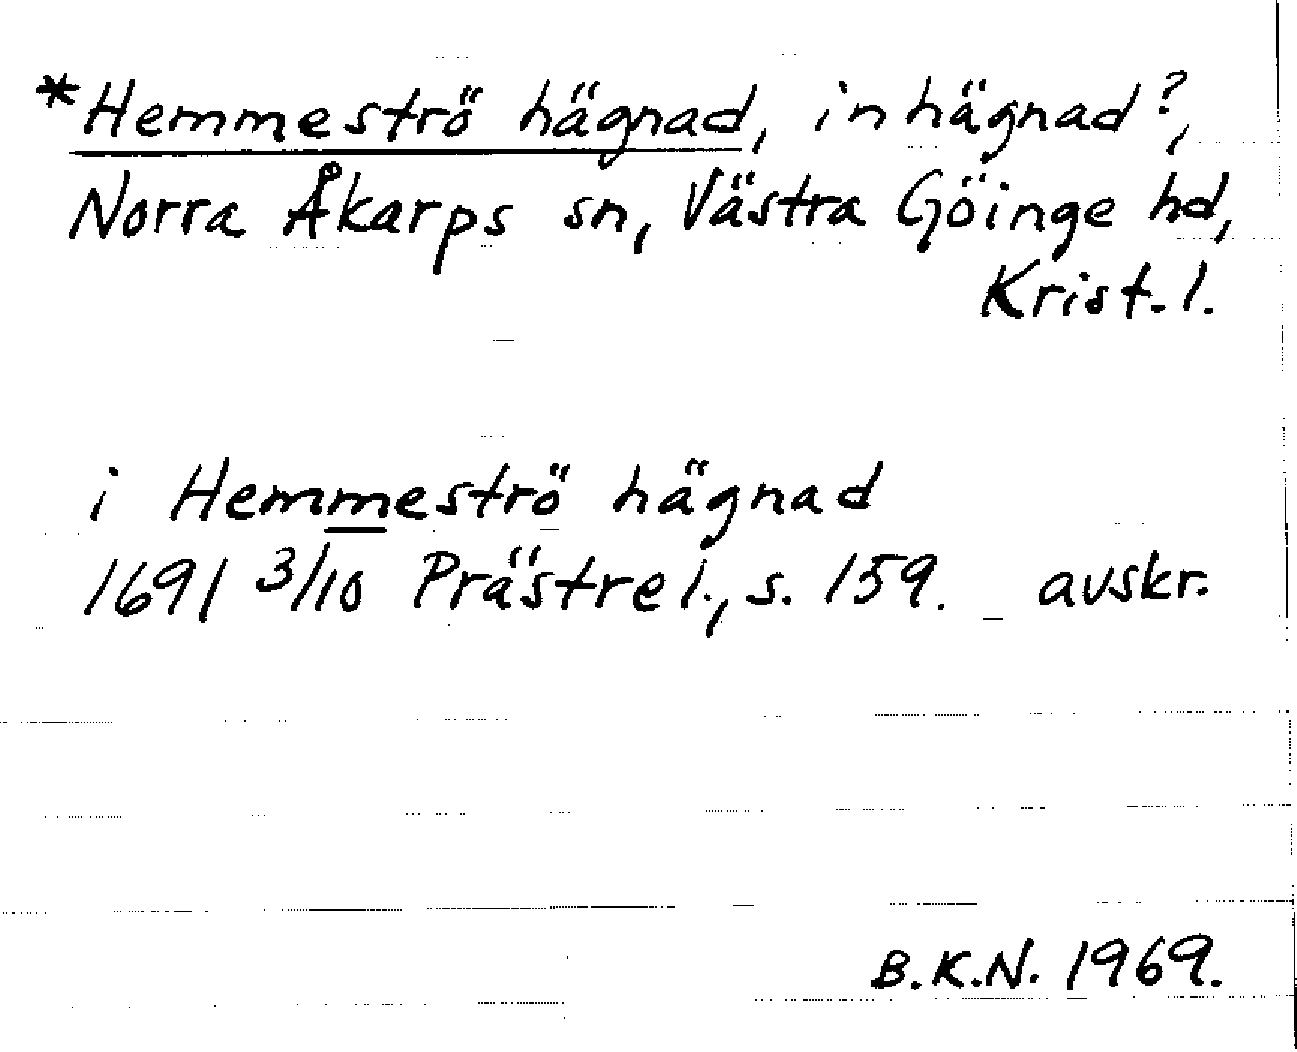 *Hemmeströ hägnad, inhägnad?,
Norra Åkarps sn, Västra Göinge hd,
Krist. l.
i Hemmeströ hägnad
1691 3/10 Prästrel., s. 159. avskr.
B.K.N. 1969.